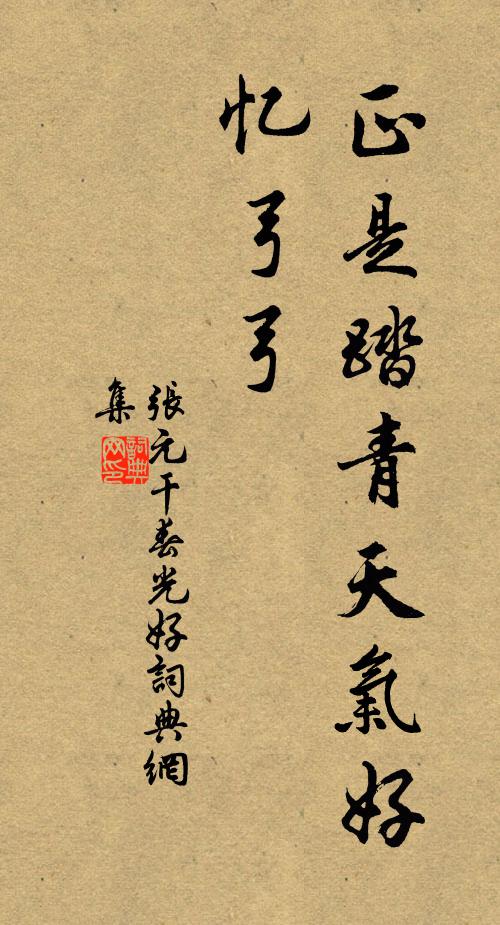 正是踏青天氣好
忆弓弓
張元干春光好詞典網
集
詞典
网印